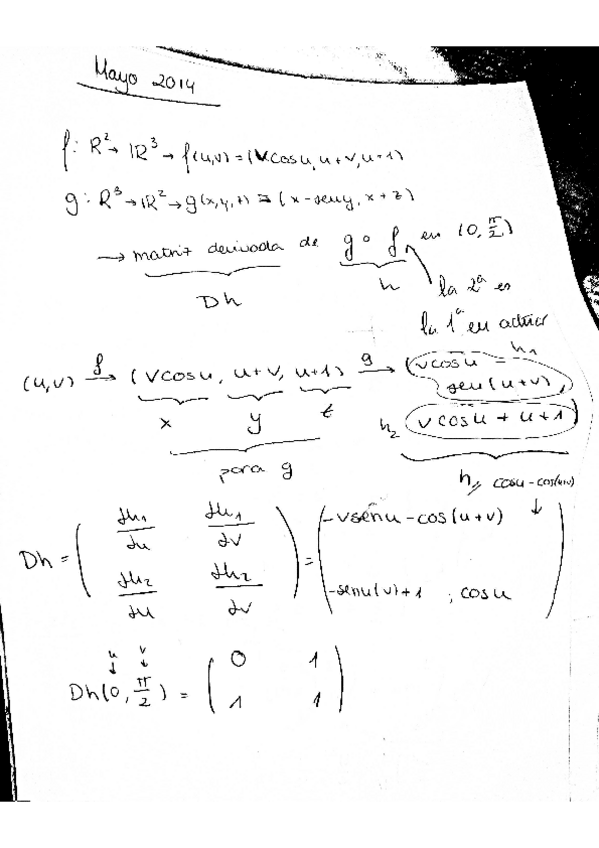 Mayo 2014
f: R² → IR³ → f(u,v) = (vcosu, u+v, u+1)
g: R³ → IR² → g(x,y,z) = (x-seny, x+z)
→ matriz derivada de g∘f en (0, π/2)
Dh h la 2ª es
la 1ª en actuar
(u,v) →f (vcosu, u+v, u+1) →g (vcosu - sen(u+v), h₁
x y z h₂ vcosu + u+1)
para g h // cosu-cos(u+v)
Dh = ( ∂h₁/∂u ∂h₁/∂v ) = ( -vsenu-cos(u+v) ↓ )
( ∂h₂/∂u ∂h₂/∂v ) ( -senu(v)+1 ; cosu )
u v
↓ ↓
Dh(0, π/2) = ( 0 1 )
( 1 1 )